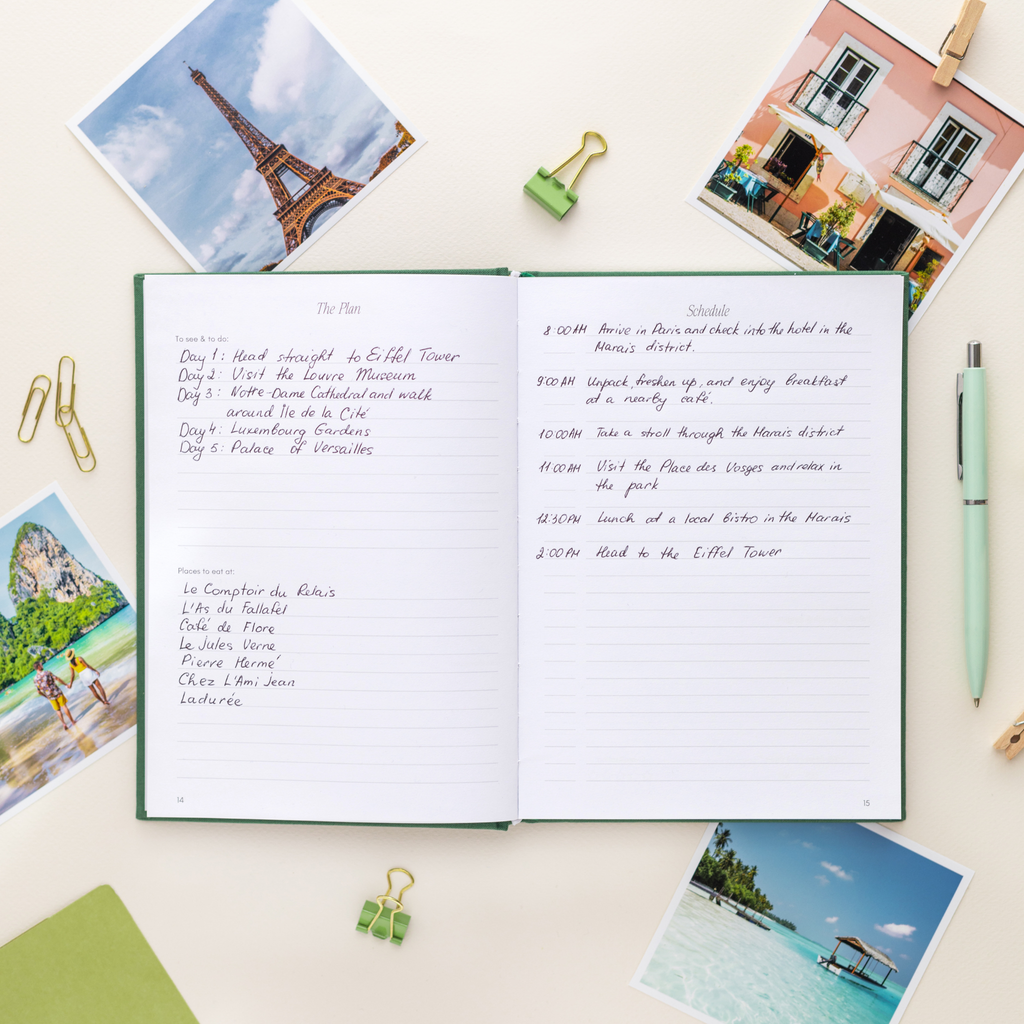 The Plan
To see & to do:
Day 1: Head straight to Eiffel Tower
Day 2: Visit the Louvre Museum
Day 3: Notre-Dame Cathedral and walk
around Île de la Cité
Day 4: Luxembourg Gardens
Day 5: Palace of Versailles
Places to eat at:
Le Comptoir du Relais
L'As du Fallafel
Café de Flore
Le Jules Verne
Pierre Hermé
Chez L'Ami Jean
Ladurée
14
Schedule
8:00 AM Arrive in Paris and check into the hotel in the
Marais district.
9:00 AM Unpack, freshen up, and enjoy breakfast
at a nearby café.
10:00 AM Take a stroll through the Marais district
11:00 AM Visit the Place des Vosges and relax in
the park
12:30 PM Lunch at a local bistro in the Marais
2:00 PM Head to the Eiffel Tower
15